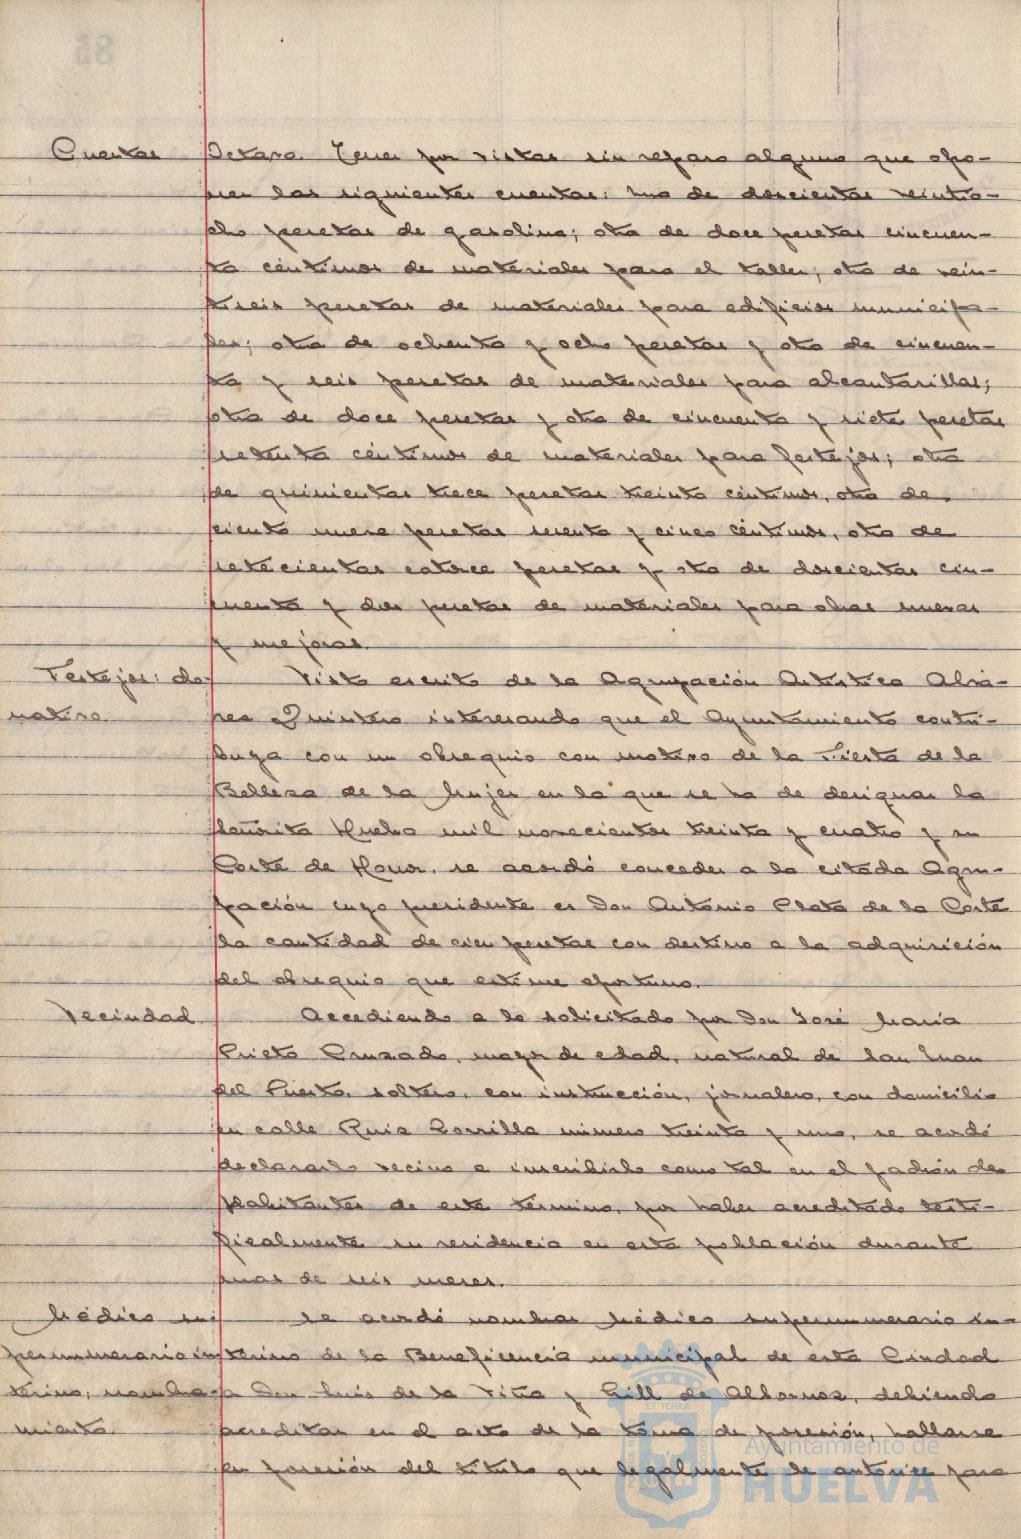 Cuentas
Octavo. Tener por vistas sin reparo alguno que opo-
ner las siguientes cuentas: una de doscientas veintio-
cho pesetas de gasolina; otra de doce pesetas cincuen-
ta céntimos de materiales para el taller; otra de vein-
tiseis pesetas de materiales para edificios municipa-
les; otra de ochenta y ocho pesetas y otra de cincuen-
ta y seis pesetas de materiales para alcantarillas;
otra de doce pesetas y otra de cincuenta y siete pesetas
setenta céntimos de materiales para festejos; otra
de quinientas trece pesetas treinta céntimos, otra de
ciento nueve pesetas sesenta y cinco céntimos, otra de
setecientas catorce pesetas y otra de doscientas cin-
cuenta y dos pesetas de materiales para obras nuevas
y mejoras.
Festejos: do-
nativo.
Visto escrito de la Agrupación Artística Alva-
rez Quintero interesando que el Ayuntamiento contri-
buya con un obsequio con motivo de la Fiesta de la
Belleza de la Mujer en la que se ha de designar la
Señorita Huelva mil novecientos treinta y cuatro y su
Corte de Honor, se acordó conceder a la citada Agru-
pación cuyo presidente es Don Antonio Plata de la Corte
la cantidad de cien pesetas con destino a la adquisición
del obsequio que estime oportuno.
Vecindad.
Accediendo a lo solicitado por Don José María
Prieto Cruzado, mayor de edad, natural de San Juan
del Puerto, soltero, con instrucción, jornalero, con domicilio
en calle Ruiz Zorrilla número treinta y uno, se acordó
declararlo vecino e inscribirlo como tal en el padrón de
habitantes de este término, por haber acreditado testi-
ficalmente su residencia en esta población durante
mas de seis meses.
Médico su-
pernumerario in-
terino, nombra-
miento.
Se acordó nombrar Médico supernumerario in-
terino de la Beneficencia municipal de esta Ciudad
a Don Luis de la Viña y Gill de Albornoz, debiendo
acreditar en el acto de la toma de posesión, hallarse
en posesión del título que legalmente le autorice para
Ayuntamiento de
HUELVA